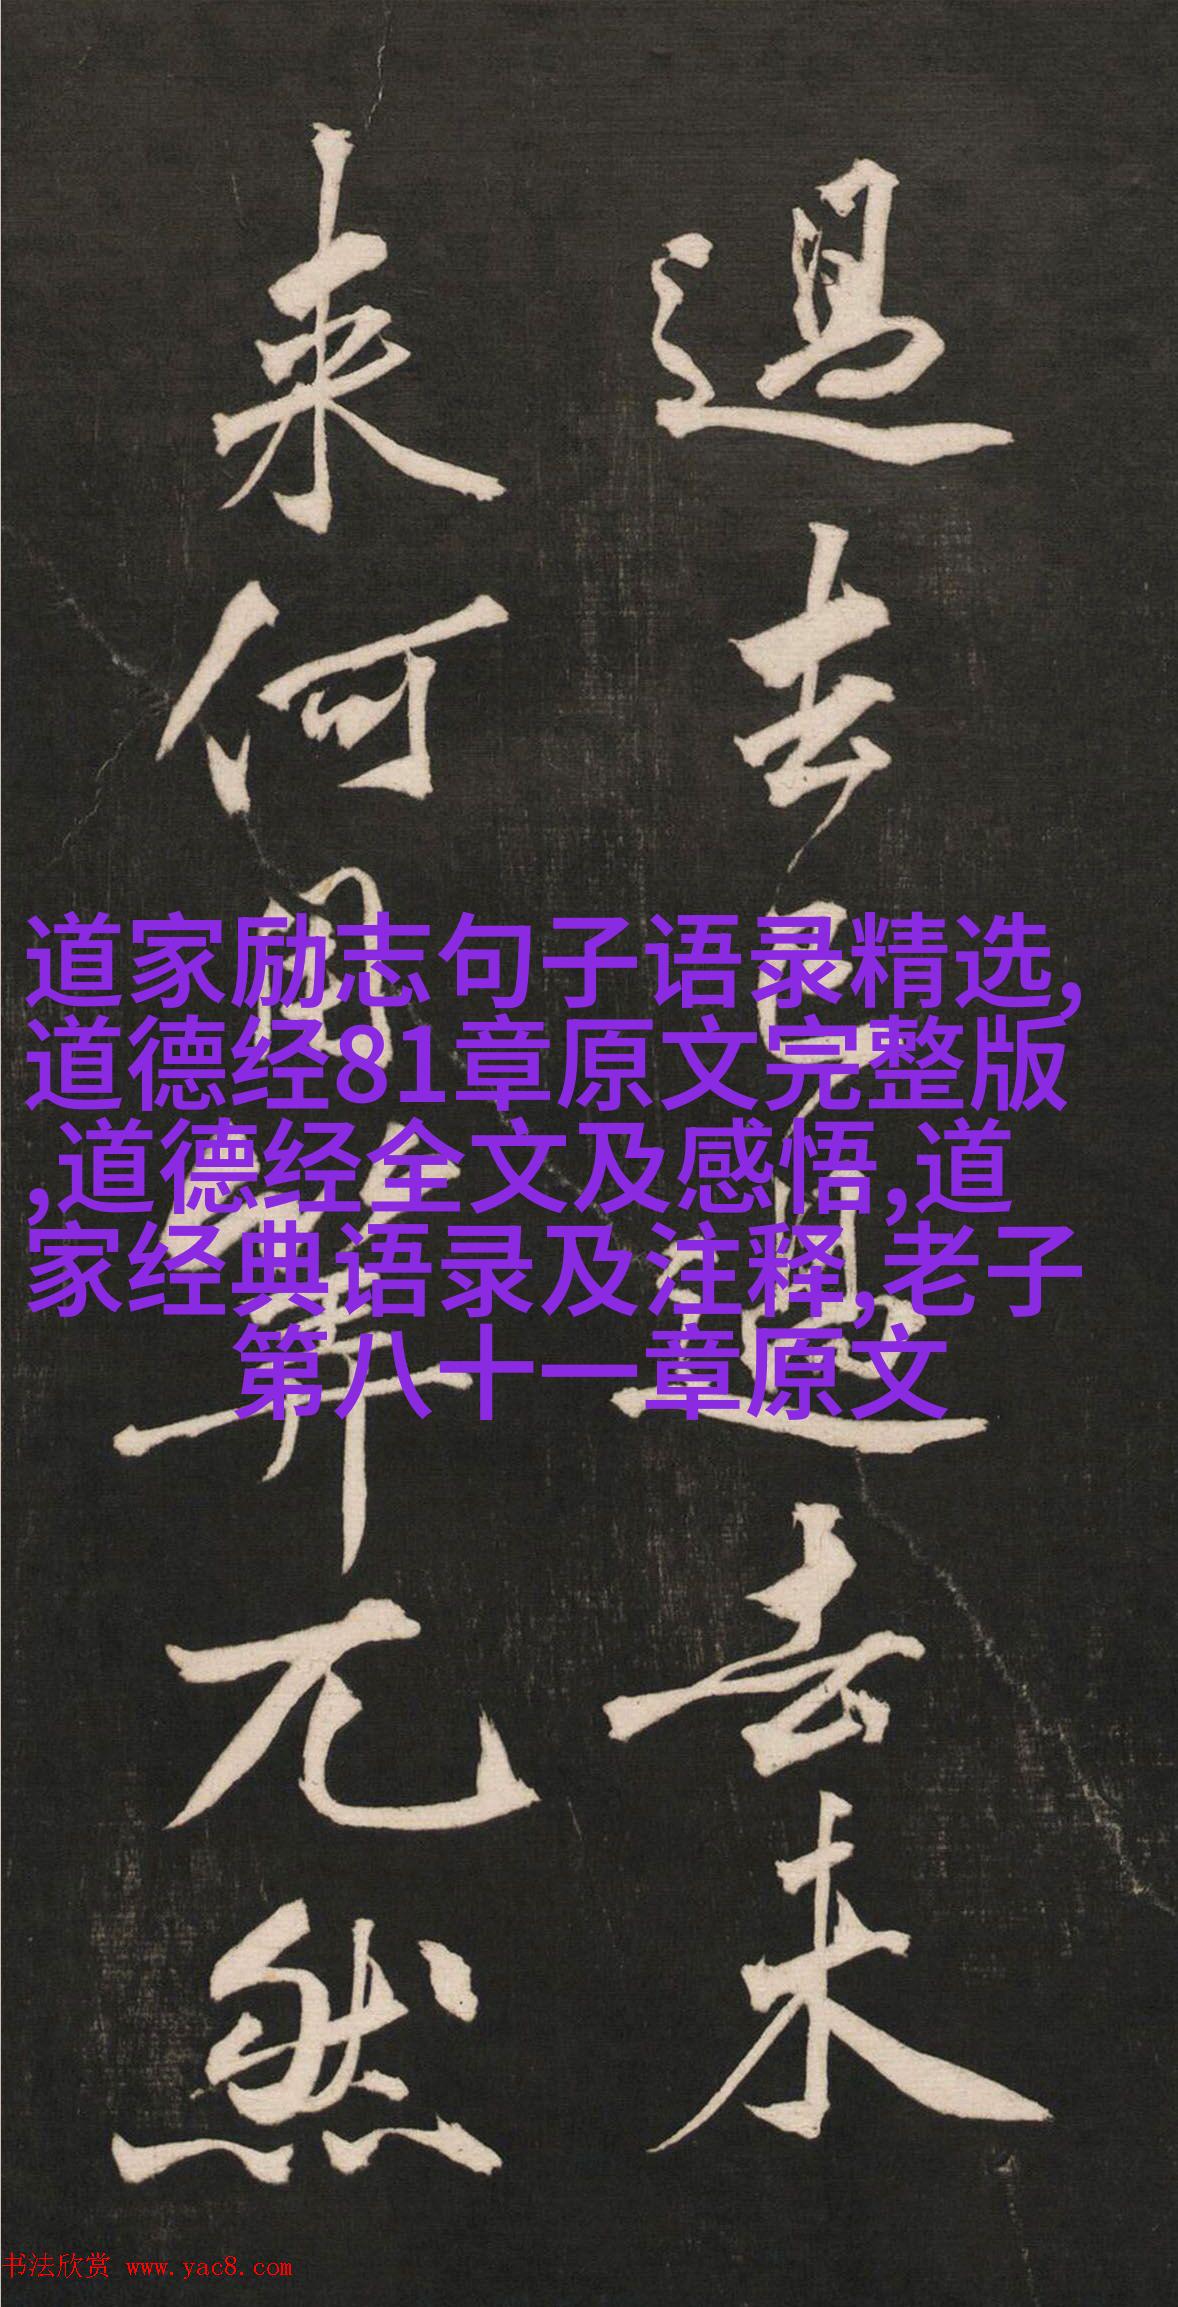 過去已過去未
来何用筭兀然
道家励志句子语录精选,
道德经81章原文完整版
,道德经全文及感悟,道
家经典语录及注释,老子
第八十一章原文
书法欣赏 www.yac8.com